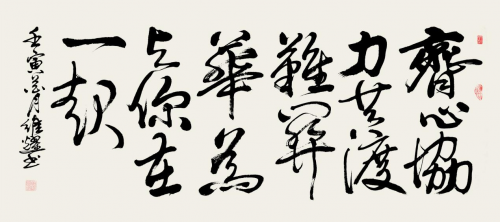 齊心協
力共渡
難關
華為
与你在
一起
壬寅 月維耀书